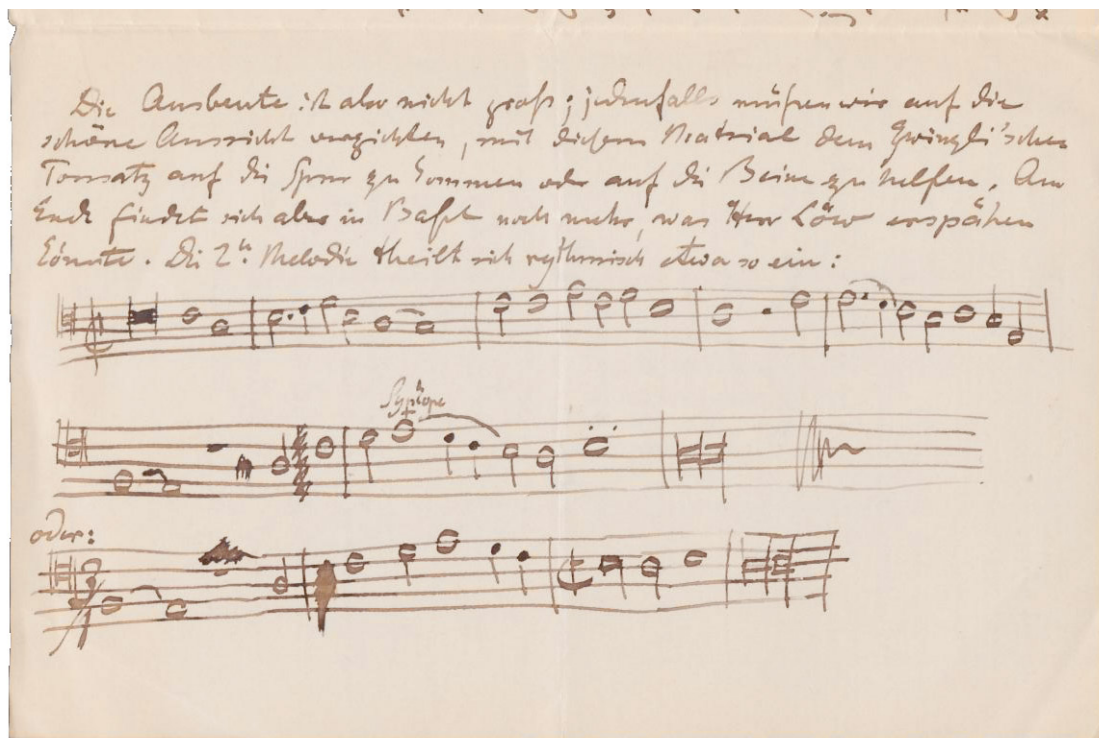 Die Ausbeute ist also nicht groß; jedenfalls müßen wir auf die
schöne Aussicht verzichten, mit diesem Material dem Zwingli'schen
Tonsatz auf die Spur zu kommen oder auf die Beine zu helfen. Am
Ende findet sich aber in Basel noch mehr, was Herr Löw erspähen
könnte. Die 2te Melodie theilt sich rythmisch etwa so ein:
oder: